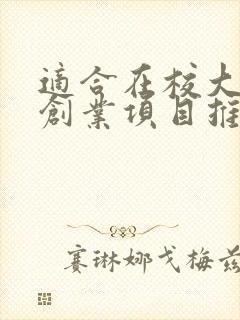 適合在校大
創業項目推
賽琳娜戈梅茲